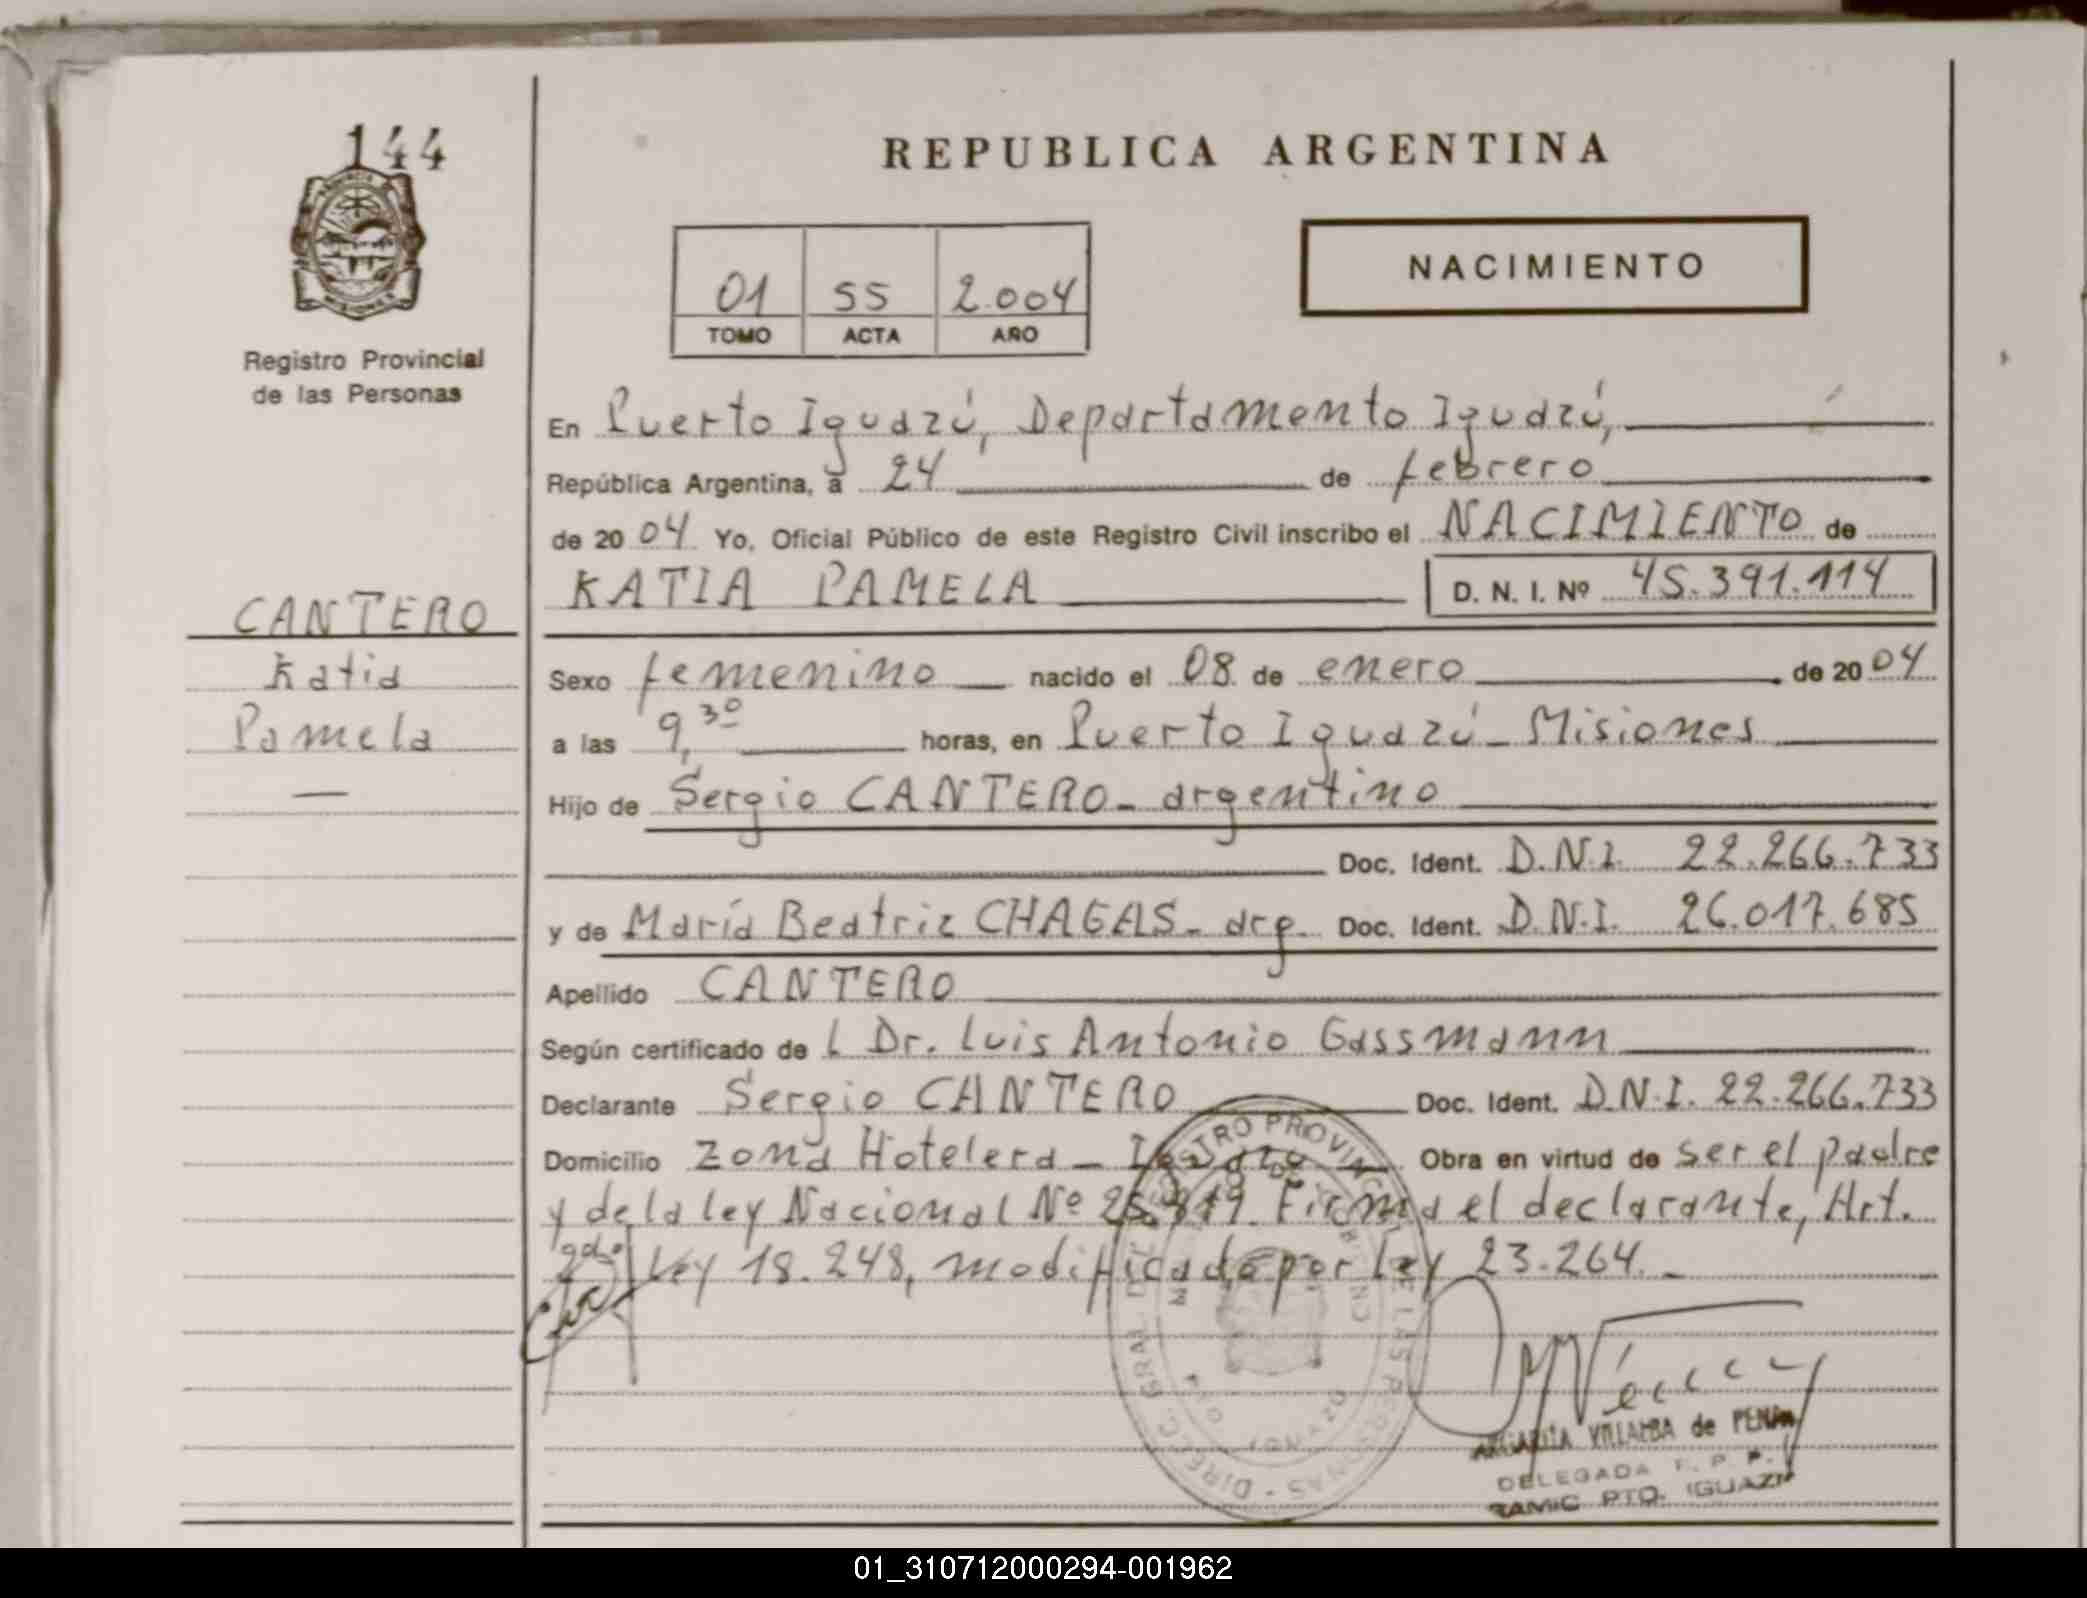 144
REPUBLICA ARGENTINA
NACIMIENTO
01 55 2.004
TOMO ACTA AÑO
Registro Provincial
de las Personas
En Puerto Iguazú, Departamento Iguazú,
República Argentina, a 24 de febrero
de 2004 Yo, Oficial Público de este Registro Civil inscribo el NACIMIENTO de
KATIA PAMELA D. N. I. Nº 45.391.114
CANTERO
Katia
Pamela
—
Sexo femenino nacido el 08 de enero de 2004
a las 9,30 horas, en Puerto Iguazú - Misiones
Hijo de Sergio CANTERO - argentino
Doc. Ident. D.N.I. 22.266.733
y de María Beatriz CHAGAS - arg. Doc. Ident. D.N.I. 26.017.685
Apellido CANTERO
Según certificado de l Dr. Luis Antonio Gassmann
Declarante Sergio CANTERO Doc. Ident. D.N.I. 22.266.733
Domicilio Zona Hotelera - Iguazú Obra en virtud de ser el padre
y de la ley Nacional Nº 25.819. Firma el declarante, Art.
2do. Ley 18.248, modificado por Ley 23.264. -
DIREC. GRAL. DEL REGISTRO PROVINCIAL DE LAS PERSONAS
IGUAZU
MARGARITA VILLALBA de PENA
DELEGADA R. P. P.
RAMIC PTO. IGUAZU
01_310712000294-001962